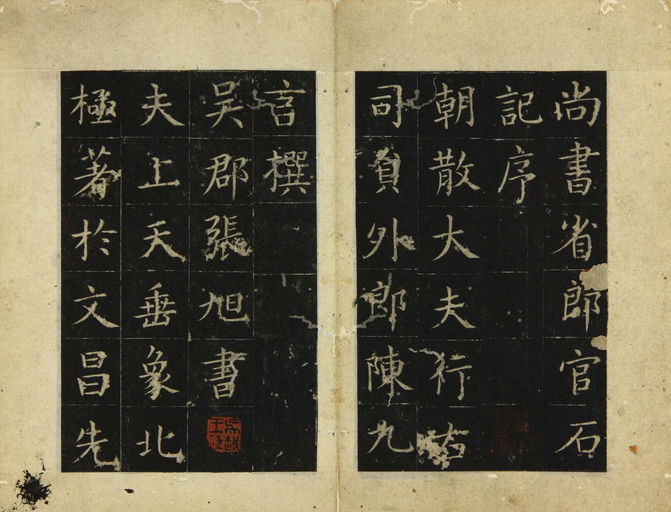 尚書省郎官石
記序
朝散大夫行右
司負外郎陳九
言撰
吳郡張旭書
夫上天垂象北
極著於文昌先